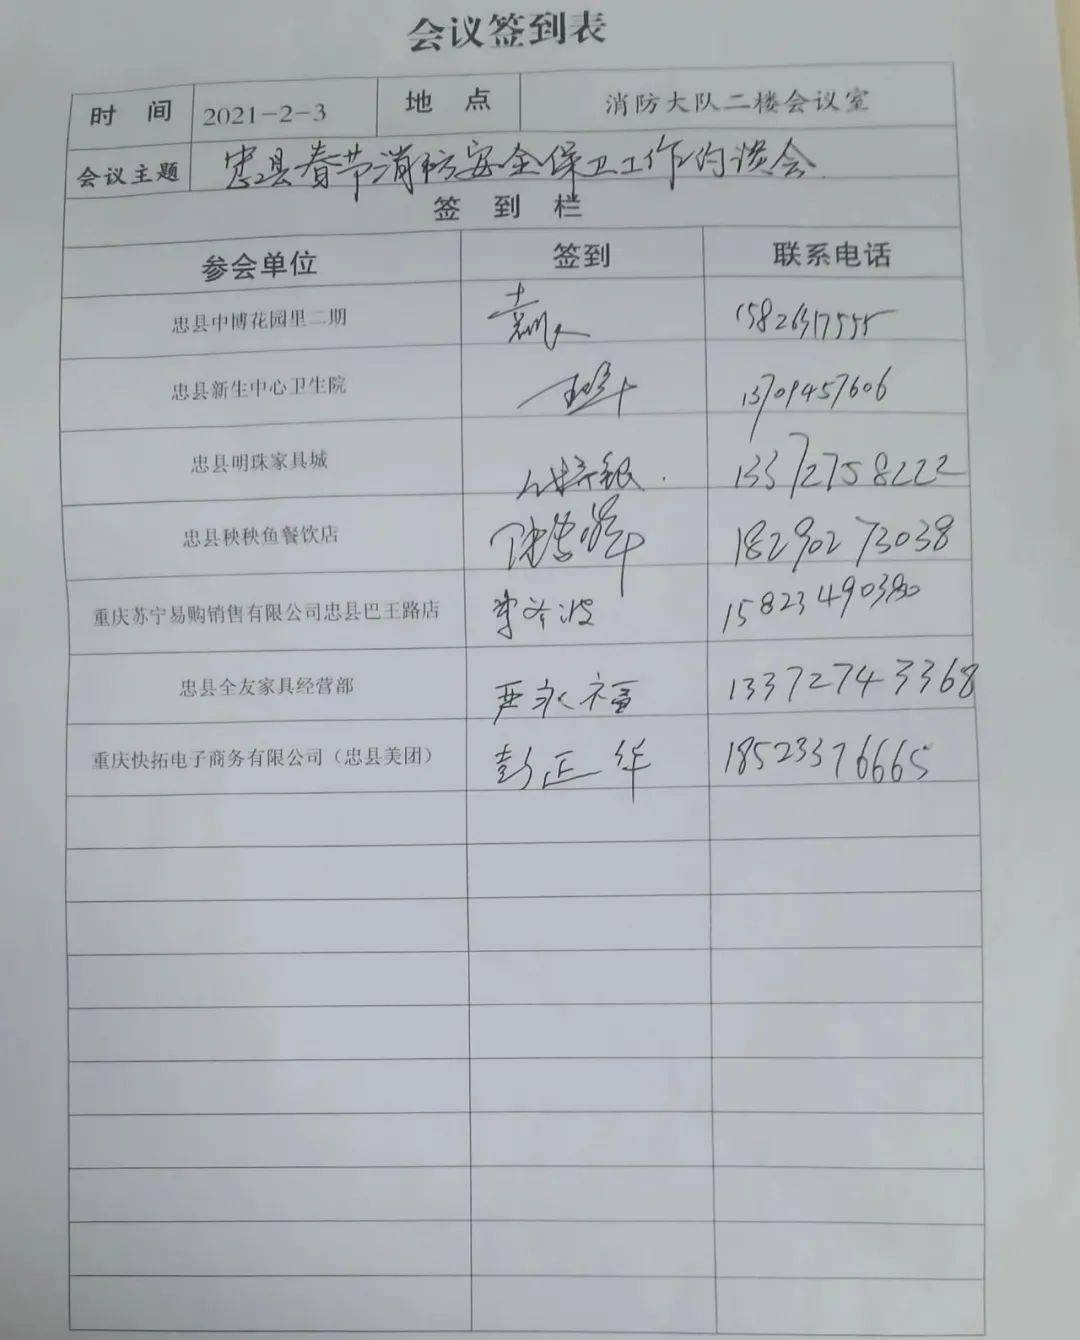 会议签到表
时 间 2021-2-3 地 点 消防大队二楼会议室
会议主题 忠县春节消防安全保卫工作约谈会
签 到 栏
参会单位 签到 联系电话
忠县中博花园里二期
忠县新生中心卫生院 13709457606
忠县明珠家具城 13372758222
忠县秧秧鱼餐饮店 18290273038
重庆苏宁易购销售有限公司忠县巴王路店
忠县全友家具经营部 严永福 13372743368
重庆快拓电子商务有限公司（忠县美团） 彭正华 18523376665